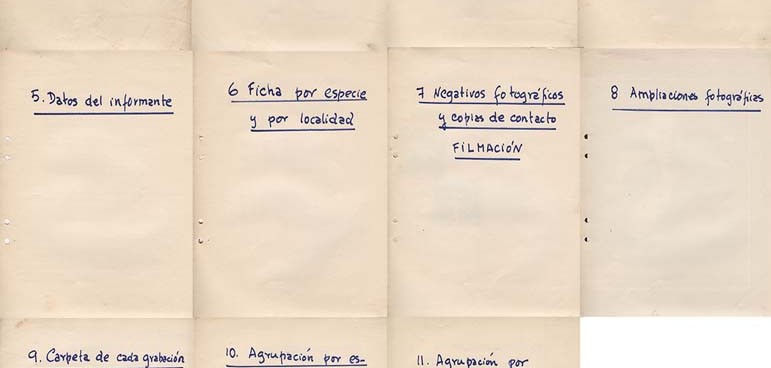 5. Datos del informante
6 Ficha por especie
y por localidad
7 Negativos fotográficos
y copias de contacto
FILMACIÓN
8 Ampliaciones fotográficas
9. Carpeta de cada grabación
10. Agrupación por es-
11. Agrupación por